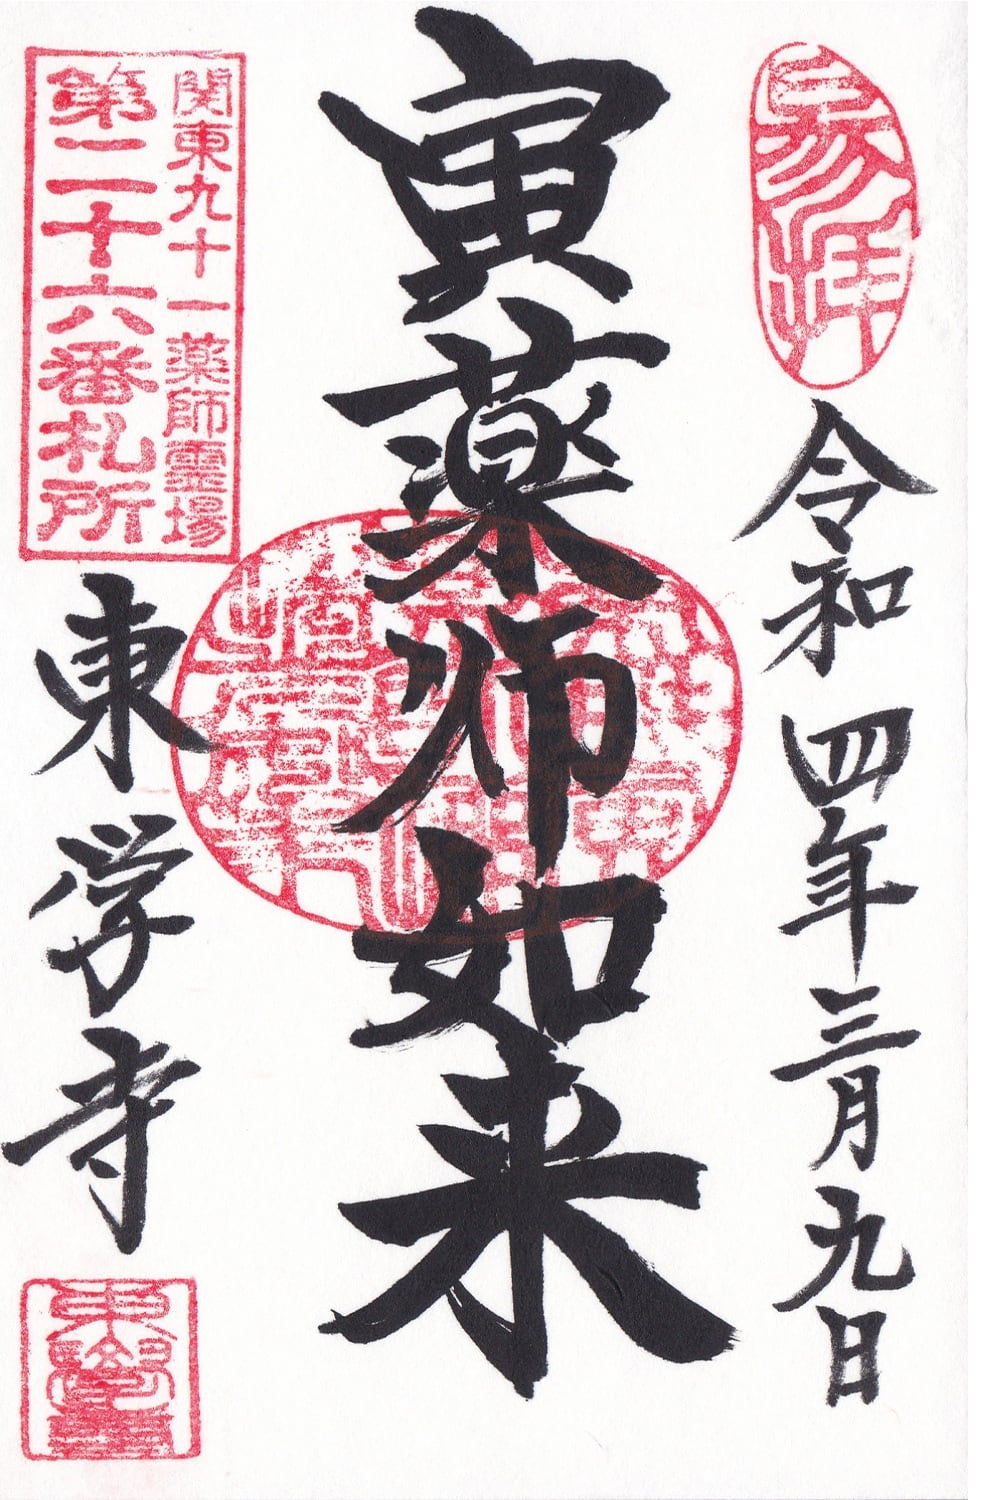 奉拝
令和四年三月九日
寅薬师如来
関東九十一薬師霊場
第二十六番札所
東学寺